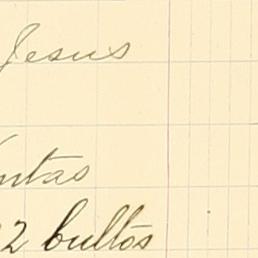 Jesus
ntas
22 bultos